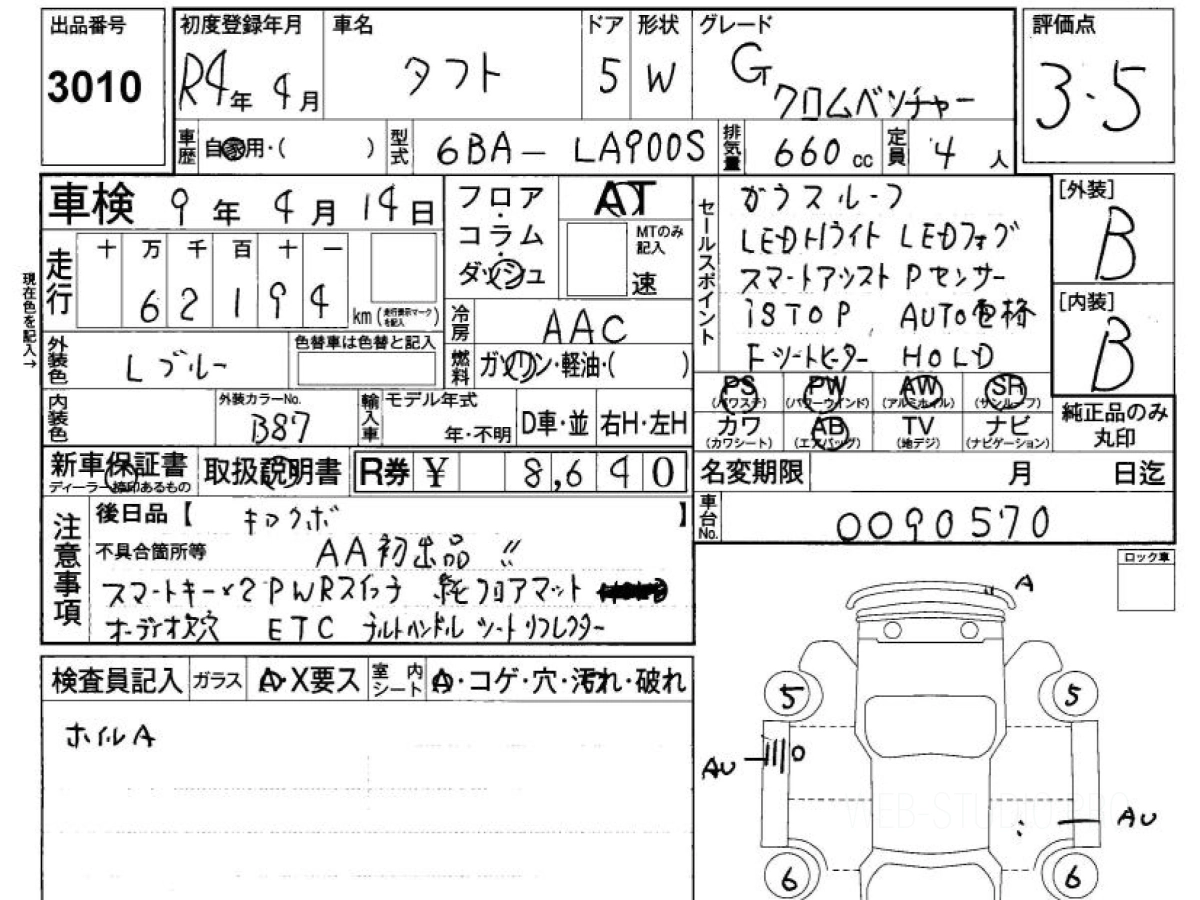 出品番号
3010
初度登録年月
R4年 4月
車名
タフト
ドア
5
形状
W
グレード
G
クロムベンチャー
評価点
3.5
車歴
自家用・( )
型式
6BA- LA900S
排気量
660 cc
定員
4 人
車検 9年 4月 14日
フロア・コラム
ダッシュ
AT
MTのみ記入
速
セールスポイント
ガラスルーフ
LEDトライト LEDフォグ
スマートアシスト Pセンサー
iSTOP AUTO電格
Fシートヒーター HOLD
[外装]
B
[内装]
B
現在色を記入→
走行
十 万 千 百 十 一
6 2 1 9 4
km (走行表示マークを記入)
冷房
AAC
燃料
ガソリン・軽油・( )
外装色
Lブルー
色替車は色替と記入
内装色
外装カラーNo.
B87
輸入車
モデル年式
年・不明
D車・並
右H・左H
PS
(パワステ)
PW
(パワーウインド)
AW
(アルミホイル)
SR
(サンルーフ)
カワ
(カワシート)
AB
(エアバッグ)
TV
(地デジ)
ナビ
(ナビゲーション)
純正品のみ
丸印
新車保証書
ディーラー捺印あるもの
取扱説明書
R券 ¥ 8,640
名変期限 月 日迄
車台No.
0090570
注意事項
後日品【 キロクボ 】
不具合箇所等
AA初出品 〃
スマートキー×2 PWRスイッチ 純フロアマット
オーディオ欠穴 ETC チルトハンドル シートリフレクター
ロック車
検査員記入
ガラス
A・X要ス
室内シート
A・コゲ・穴・汚れ・破れ
ホイルA
A
5
5
AU
AU
6
6
WEB-STUDIO PRO